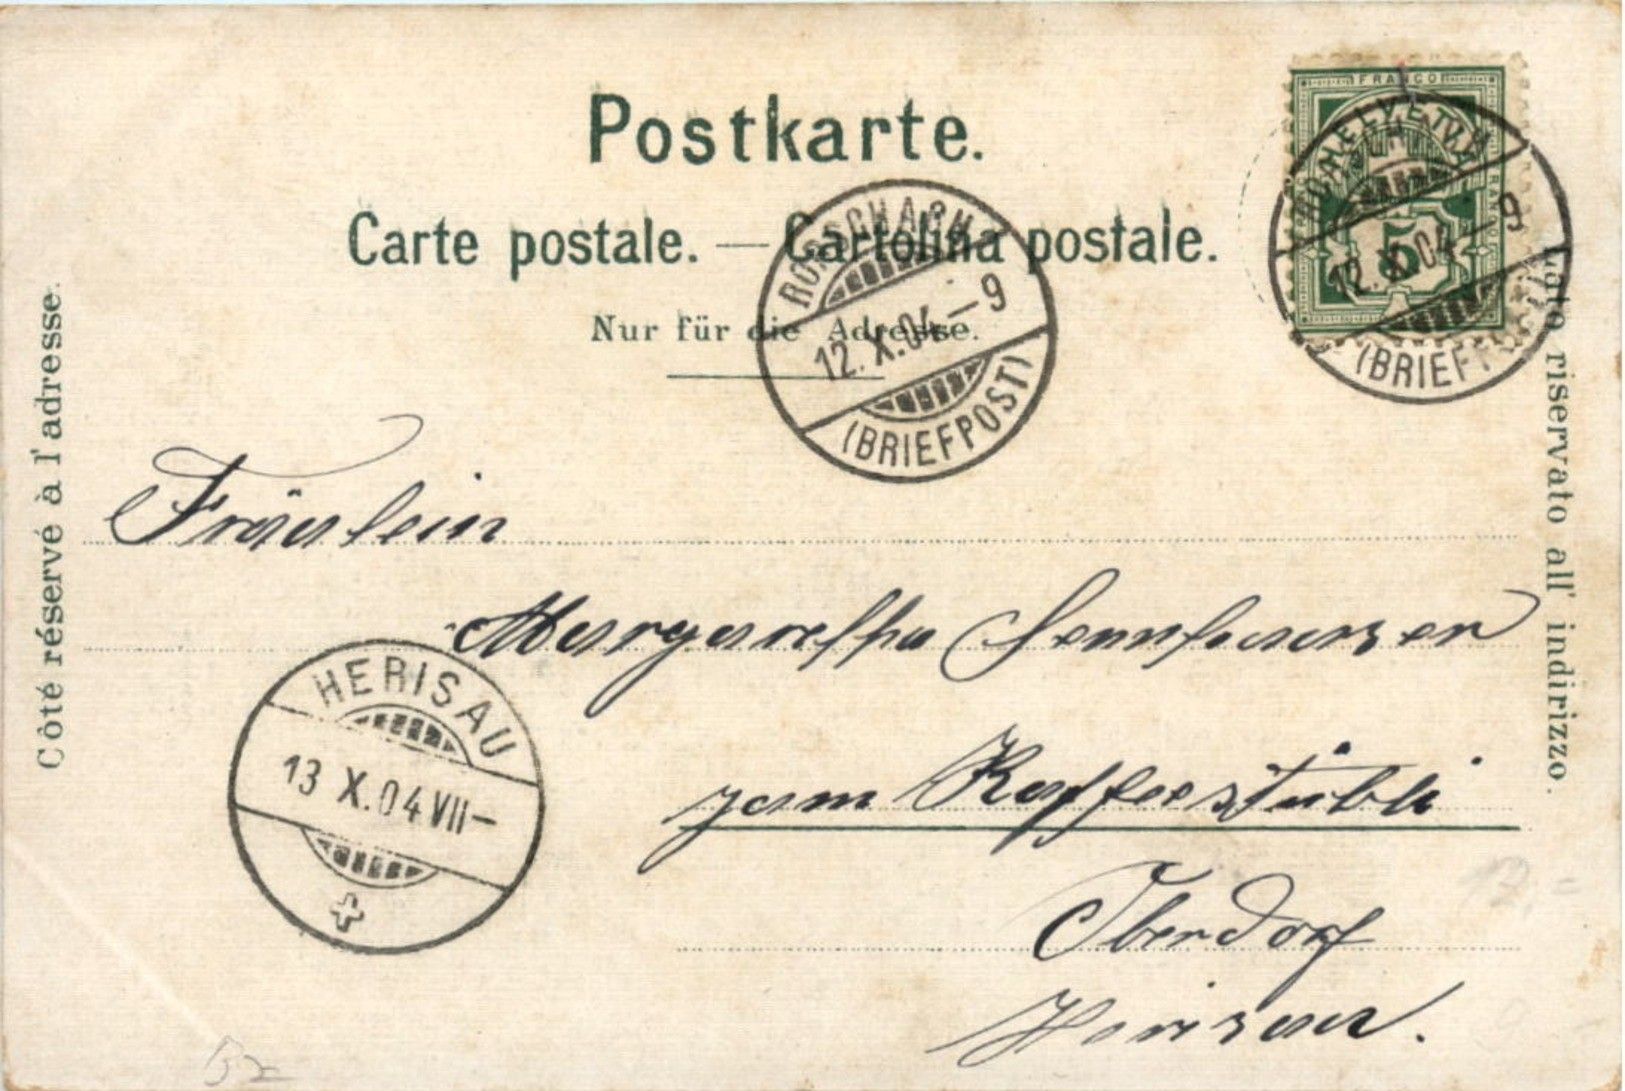 Postkarte.
Carte postale. — Cartolina postale.
Nur für die Adresse.
Côté réservé à l'adresse.
Lato riservato all' indirizzo.
FRANCO
HELVETIA
5
RORSCHACH
12. X. 04 – 9
(BRIEFPOST)
RORSCHACH
12. X. 04 – 9
(BRIEFPOST)
Fräulein
Margaretha Sennhauser
zum Kaffeestübli
Oberdorf
Herisau.
HERISAU
13 X. 04 VII –